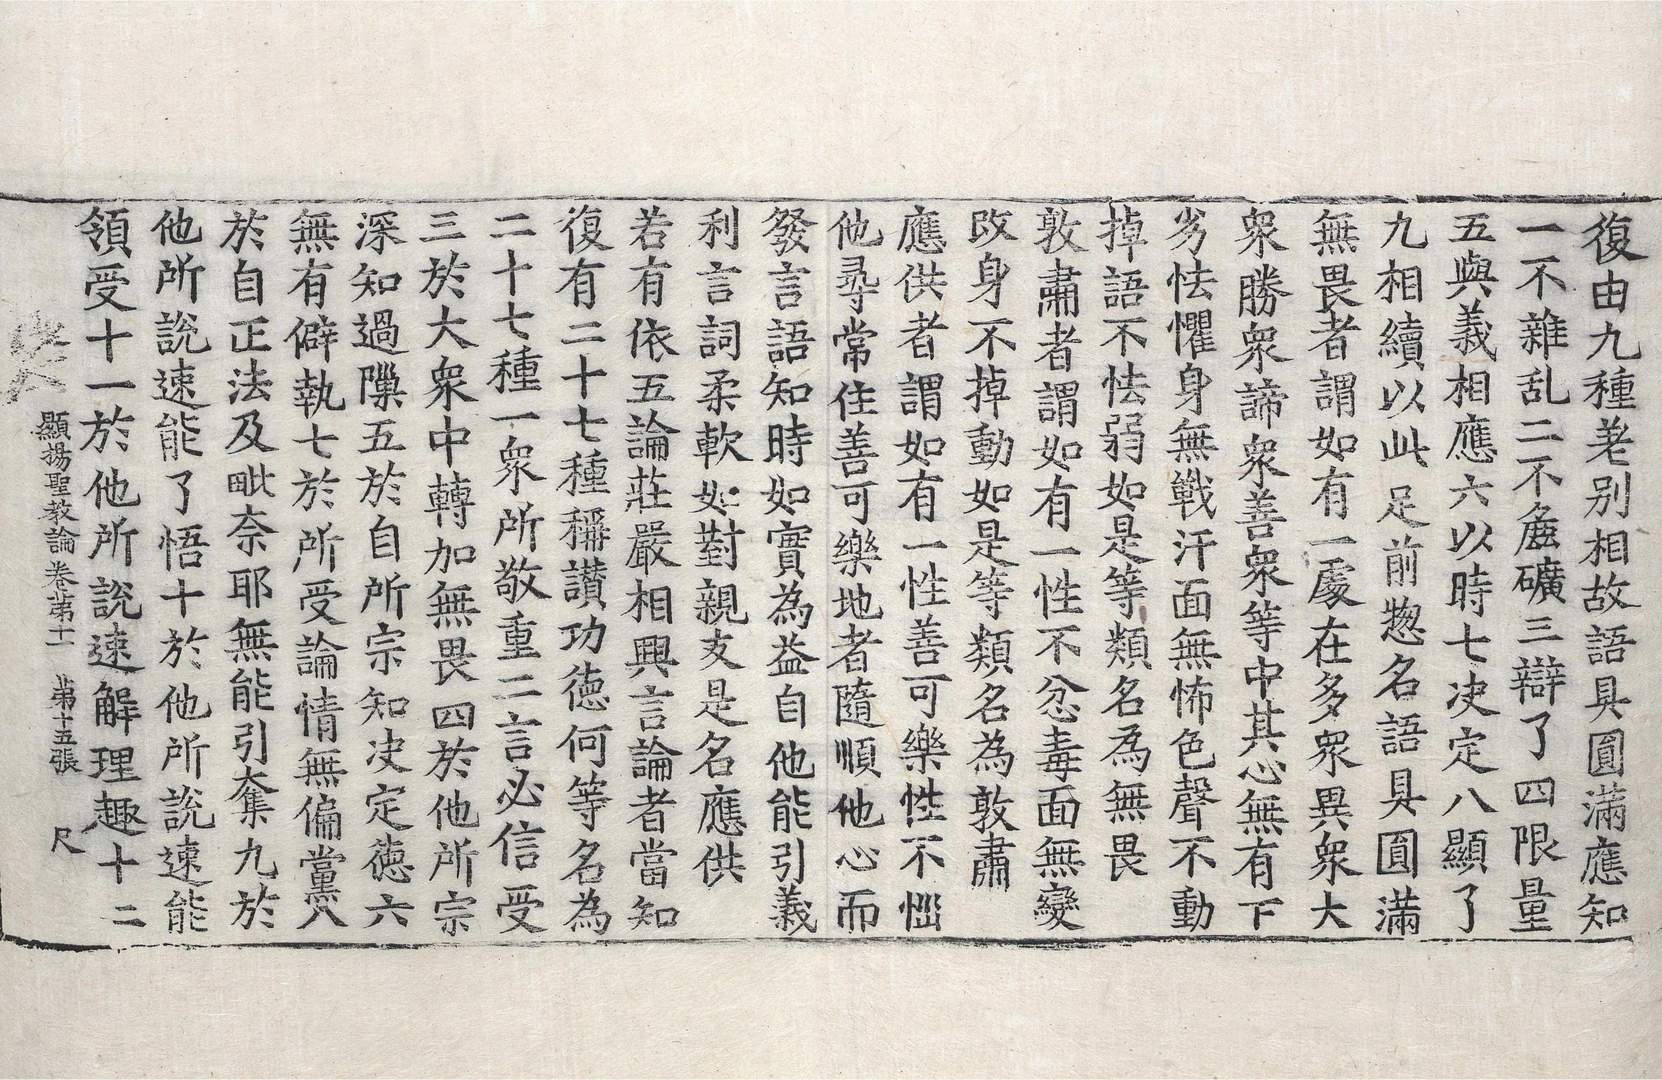 復由九種差别相故語具圓滿應知
一不雜乱二不麁礦三辯了四限量
五與義相應六以時七决定八顯了
九相續以此足前惣名語具圓滿
無畏者謂如有一處在多衆異衆大
衆勝衆諦衆善衆等中其心無有下
劣怯懼身無戰汗面無怖色聲不動
掉語不怯弱如是等類名為無畏
敦肅者謂如有一性不忿毒面無變
改身不掉動如是等類名為敦肅
應供者謂如有一性善可樂性不惱
他尋常住善可樂地者隨順他心而
發言語知時如實為益自他能引義
利言詞柔軟如對親友是名應供
若有依五論莊嚴相興言論者當知
復有二十七種稱讃功徳何等名為
二十七種一衆所敬重二言必信受
三於大衆中轉加無畏四於他所宗
深知過隟五於自所宗知决定徳六
無有僻執七於所受論情無偏黨八
於自正法及毗奈耶無能引奪九於
他所說速能了悟十於他所說速能
領受十一於他所說速解理趣十二
顯揚聖教論卷苐十一 苐十五張 尺